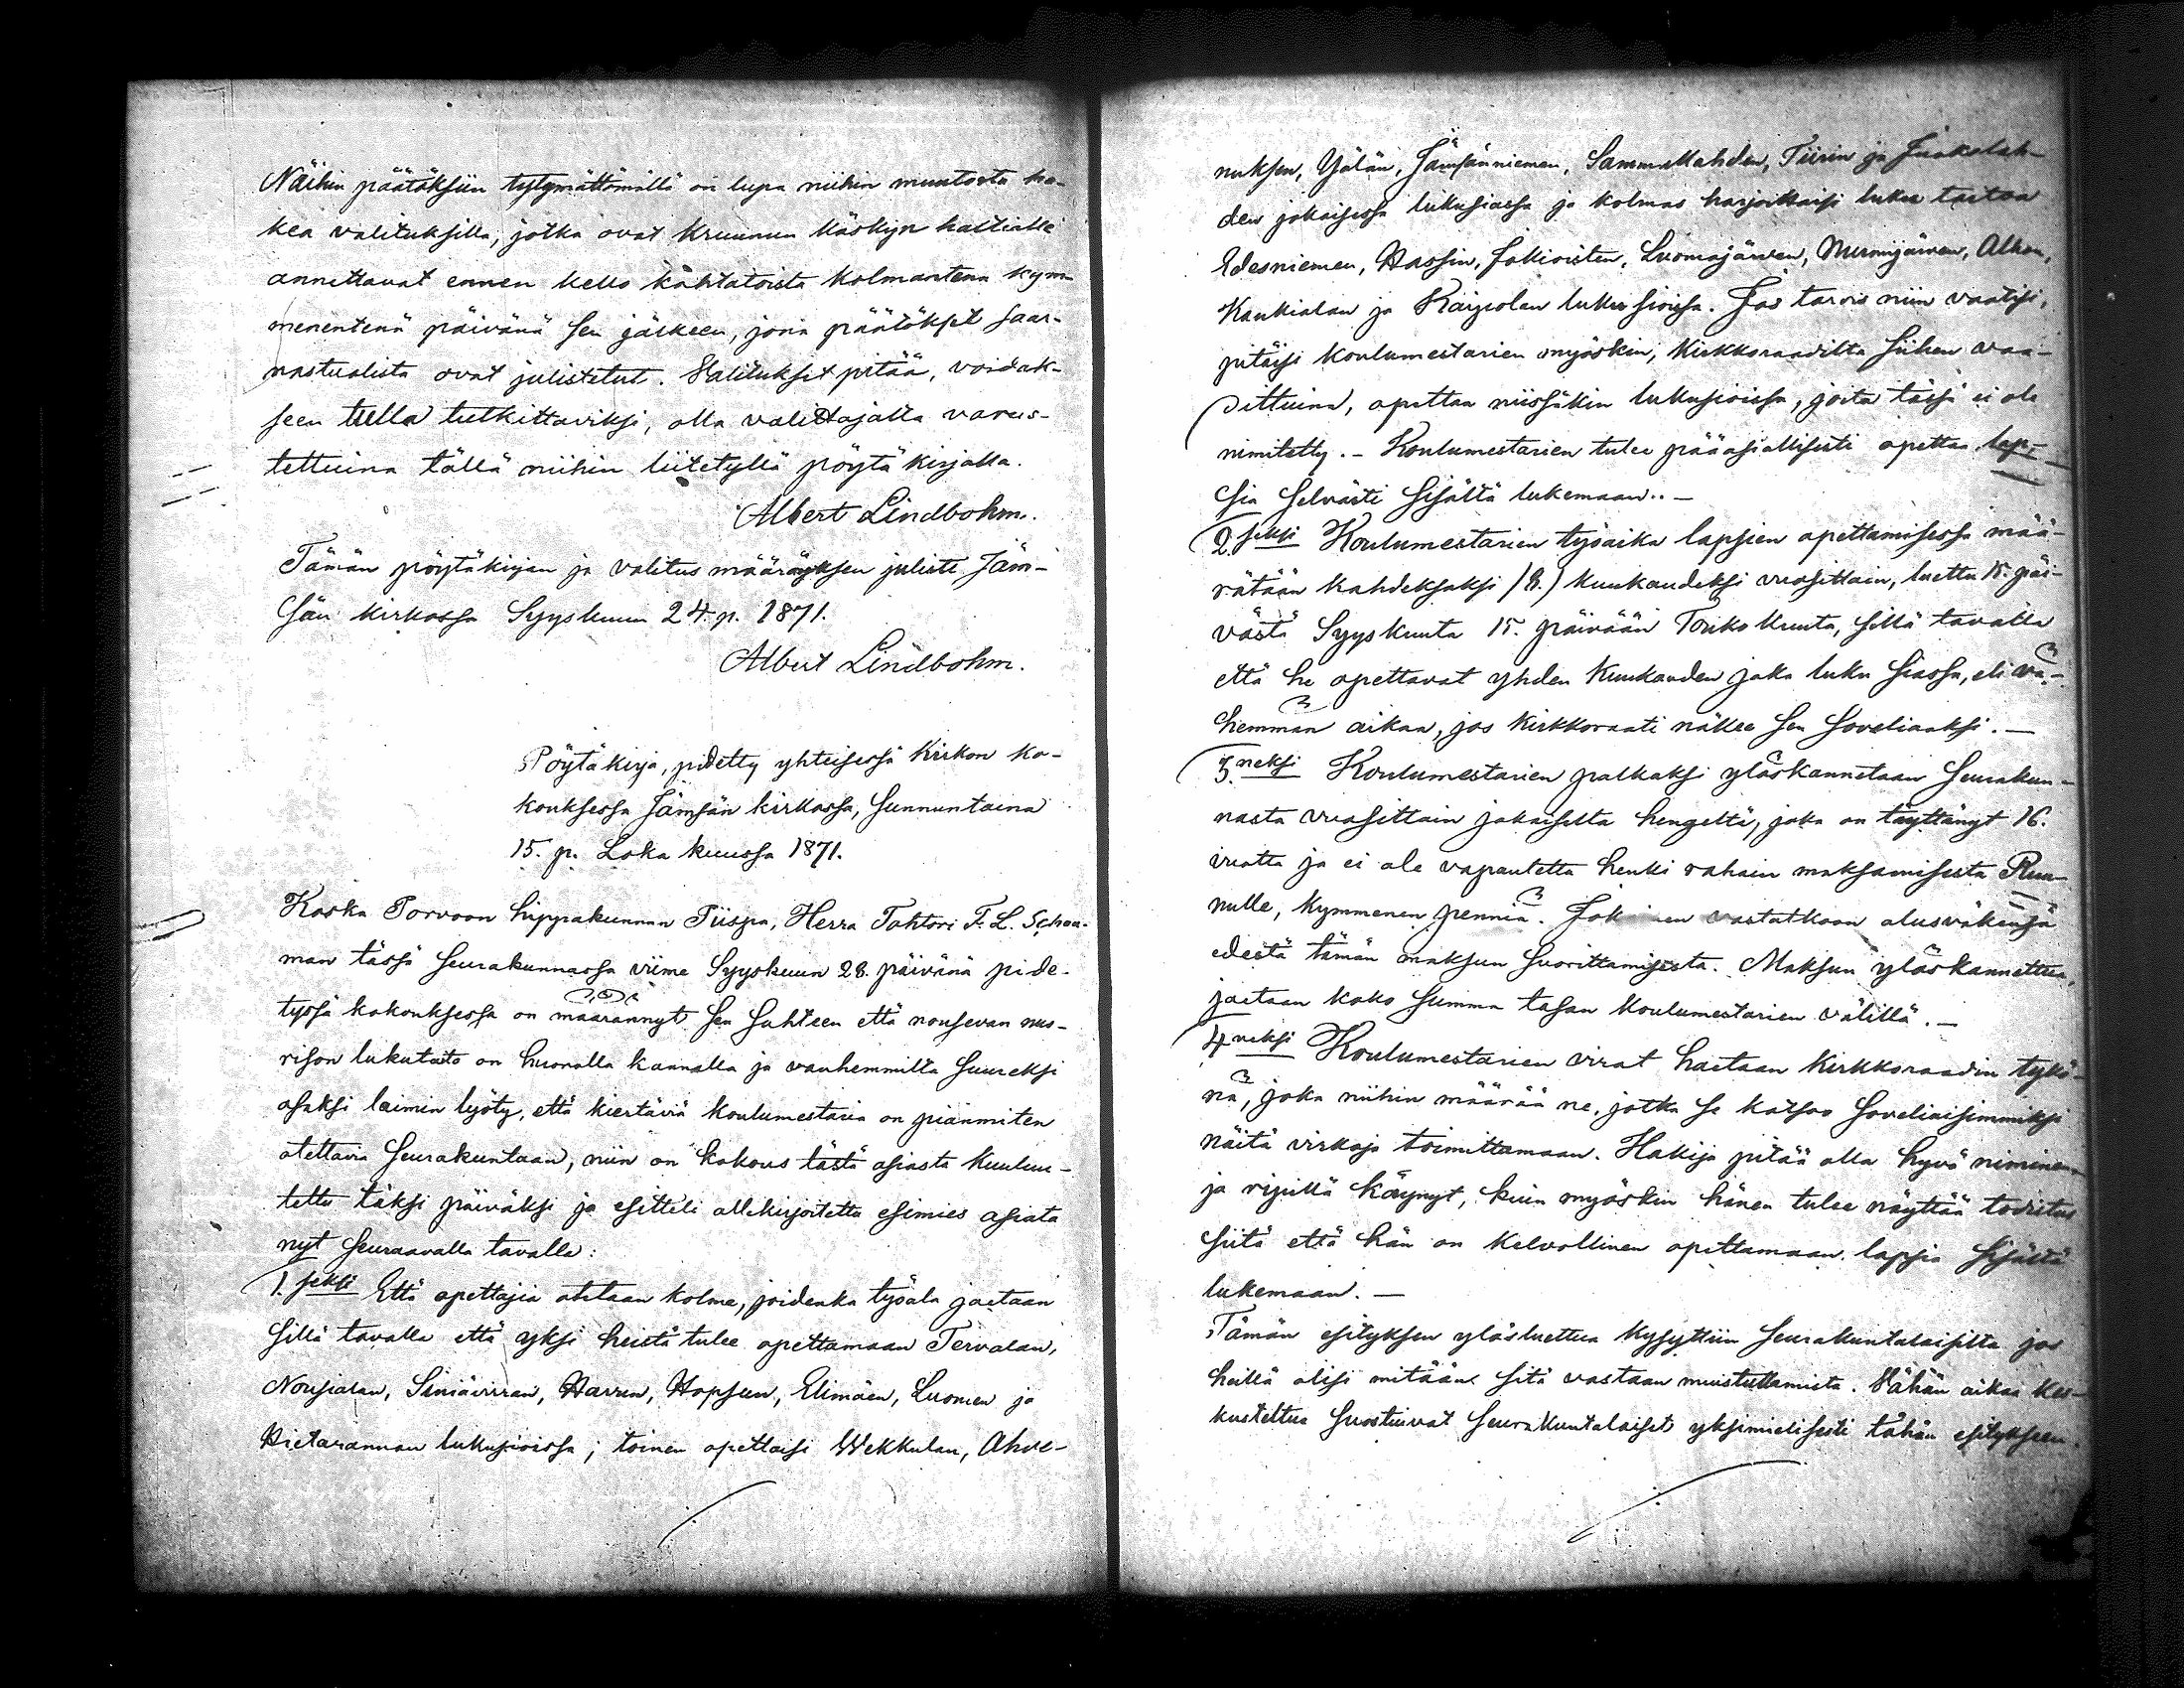 Näihin päätöksiin tytymättömällä on lupa niihin muutosta ha-
kea valituksilla, jotka ovat Kruunun Käskyn haltialle
annettavat ennen kello kahtatoista kolmantena kym-
menentenä päivänä sen jälkeen, jona päätökset saar-
nastuolista ovat julistetut. Valitukset pitää, voidak-
seen tulla tutkittaviksi, olla valittajalta varus-
tettuina tällä niihin liitetyllä pöytäkirjalla.
Albert Lindbohm.
Tämän pöytäkirjan ja valitus määräyksen julisti Jäm-
sän kirkossa Syyskuun 24. p. 1871.
Albert Lindbohm.
Pöytäkirja, pidetty yhteisessä Kirkon ko-
kouksessa Jämsän kirkossa, Sunnuntaina
15. p. Loka kuussa 1871.
Koska Porvoon hippakunnan Piispa, Herra Tohtori F. L. Schau-
man tässä Seurakunnassa viime Syyskuun 28. päivänä pide-
tyssä kokouksessa on määrännyt sen suhteen että nousevan nuo-
rison lukutaito on huonolla kannalla ja vanhemmilta suureksi
osaksi laimin lyöty, että kiertäviä koulumestaria on pianmiten
otettava Seurakuntaan, niin on kokous tästä asiasta kuulu-
tettu täksi päiväksi ja esitteli allekirjoitettu esimies asiata
nyt seuraavalla tavalla:
1.seksi Että opettajia otetaan kolme, joidenka työala jaetaan
sillä tavalla että yksi heistä tulee opettamaan Tervalan,
Nousialan, Siniäirran, Harrin, Hopsun, Elimäen, Luomen ja
Hietarannan lukusioissa; toinen opettaisi Wekkulan, Ahve-
nuksen, Yölän, Jämsänniemen, Sammallahden, Tiirin ja Juokslah-
den jokaisessa lukusiassa ja kolmas harjoittaisi luku taitoa
Edesniemen, Hassin, Jokioisten, Luomajärven, Nurmijärven, Alhon,
Kaukialan ja Kaipolan luku sioissa. Jos tarvis niin vaatisi,
pitäisi koulumestarien myöskin, Kirkkoraadilta siihen vaa-
dittuina, opettaa niissäkin lukusioissa, joita tässä ei ole
nimitetty. – Koulumestarien tulee pääasiallisesti opettaa lap-
sia selvästi sisältä lukemaan. –
2.seksi Koulumestarien työaika lapsien opettamisessa mää-
rätään kahdeksaksi (8.) kuukaudeksi vuosittain, luettu 15. päi-
västä Syyskuuta 15. päivään Toukokuuta, sillä tavalla
että he opettavat yhden kuukauden joka luku siassa, eli vä-
hemmän aikaa, jos Kirkkoraati näkee sen soveliaaksi. –
3.neksi Koulumestarien palkaksi ylöskannetaan Seurakun-
nasta vuosittain jokaiselta hengeltä, joka on täyttänyt 16.
vuotta ja ei ole vapautettu henki rahain maksamisesta Ruu-
nulle, kymmenen penniä. Jokainen vastatkoon alusväkensä
edestä tämän maksun suorittamisesta. Maksun ylöskannettua,
jaetaan koko summa tasan Koulumestarien välillä. –
4.neksi Koulumestarien virat haetaan Kirkkoraadin tykö-
nä, joka niihin määrää ne, jotka se katsoo soveliaisimmiksi
näitä virkoja toimittamaan. Hakija pitää olla hyvä niminen
ja ripillä käynyt, kuin myöskin hänen tulee näyttää todistus
siitä että hän on kelvollinen opettamaan lapsia sisältä
lukemaan. –
Tämän esityksen ylösluettua kysyttiin Seurakuntalaisilta jos
heillä olisi mitään sitä vastaan muistuttamista. Vähän aikaa kes-
kusteltua suostuivat Seurakuntalaiset yksimielisesti tähän esitykseen.